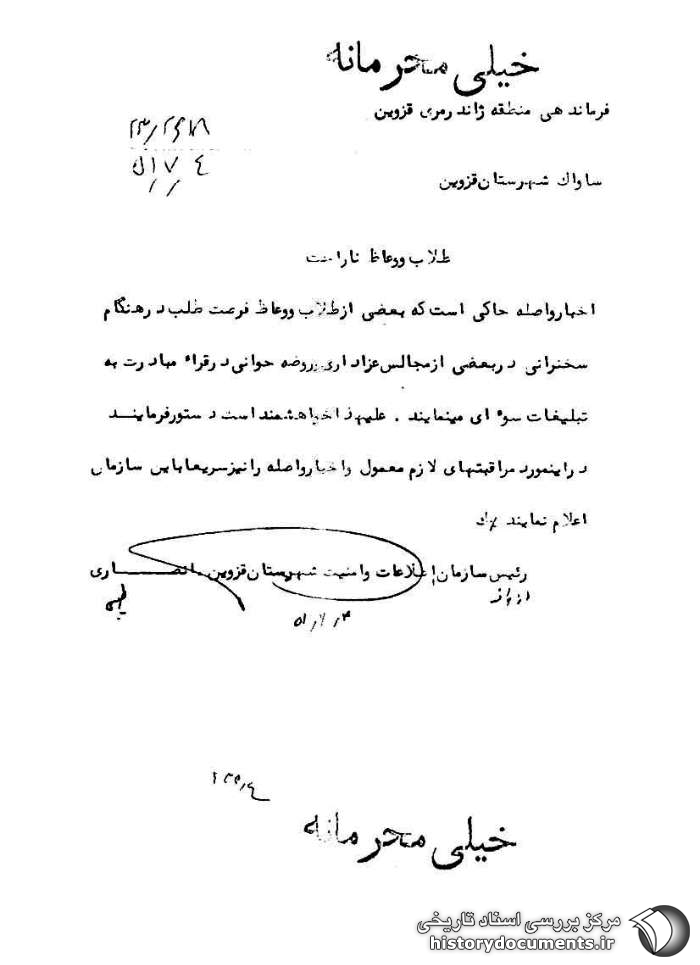 خیلی محرمانه
فرماندهی منطقه ژاندرمری قزوین
۲۳/۲۶۲۸
۵۱/۷/۴
ساواك شهرستان قزوین
طلاب ووعاظ ناراحت
اخبارواصله حاکی است که بعضی ازطلاب ووعاظ فرصت طلب درهنگام
سخنرانی دربعضی ازمجالس عزاداری وروضه خوانی درقراء مبادرت به
تبلیغات سوء ای مینمایند . علیهذاخواهشمنداست دستورفرمایند
دراینمورد مراقبتهای لازم معمول واخبارواصله رانیزسریعاباین سازمان
اعلام نمایند
رئیس سازمان اطلاعات وامنیت شهرستان قزوین . انصاری
خیلی محرمانه
مرکز بررسی اسناد تاریخی
historydocuments.ir